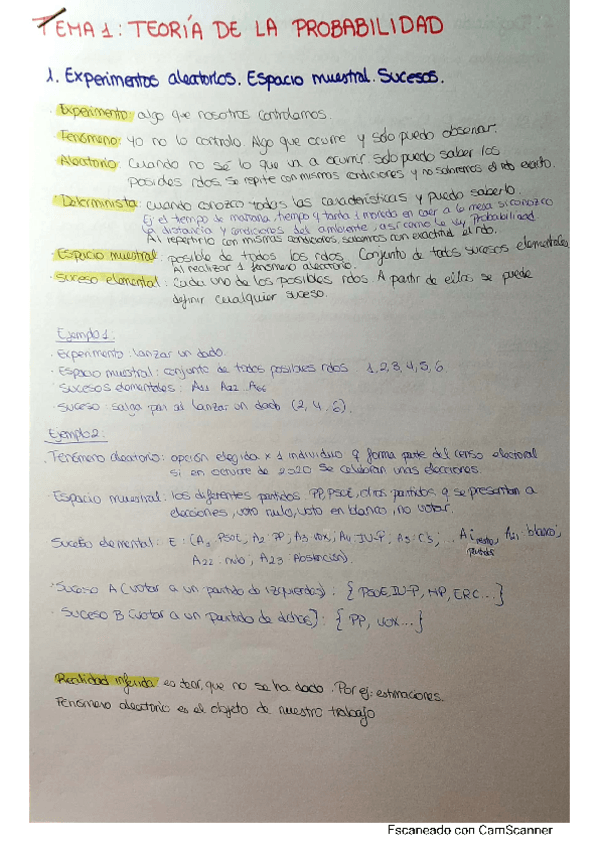 TEMA 1: TEORÍA DE LA PROBABILIDAD
1. Experimentos aleatorios. Espacio muestral. Sucesos.
· Experimento: algo que nosotros controlamos.
Fenómeno: yo no lo controlo. Algo que ocurre y sólo puedo observar.
Aleatorio: Cuando no sé lo que va a ocurrir. Solo puedo saber los
posibles rdos. Se repite con mismas condiciones y no sabremos el rdo exacto.
Determinista: cuando conozco todas las características y puedo saberlo.
Ej el tiempo de mañana, tiempo q tarda 1 moneda en caer a la mesa si conozco
la distancia y condiciones del ambiente, así como la Probabilidad
Al repetirlo con mismas condiciones, sabemos con exactitud el rdo.
· Espacio muestral: posible de todos los rdos. Conjunto de todos sucesos elementales
Al realizar 1 fenómeno aleatorio.
· Suceso elemental: Cada uno de los posibles rdos. A partir de ellos se puede
definir cualquier suceso.
Ejemplo 1:
· Experimento: lanzar un dado.
· Espacio muestral: conjunto de todos posibles rdos 1, 2, 3, 4, 5, 6
· Sucesos elementales: A₁₁ A₂₂ A₆₆
· Suceso: salga par al lanzar un dado (2, 4, 6).
Ejemplo 2:
· Fenómeno aleatorio: opción elegida x 1 individuo q forma parte del censo electoral
si en octubre de 2020 se celebran unas elecciones.
· Espacio muestral: los diferentes partidos PP, PSOE, otros partidos, q se presentan a
elecciones, voto nulo, voto en blanco, no votar.
Suceso elemental: E: (A₁ PSOE, A₂ PP, A₃ VOX, A₄ IU-P, A₅ C's, ... Ai resto partidos, blanco;
A₂₂ nulo; A₂₃ Abstención).
· Suceso A (votar a un partido de izquierdas): { PSOE, IU-P, MP, ERC...}
· Suceso B (votar a un partido de dchas): { PP, VOX...}
Realidad inferida: es decir, que no se ha dado. Por ej: estimaciones.
Fenómeno aleatorio es el objeto de nuestro trabajo
Escaneado con CamScanner